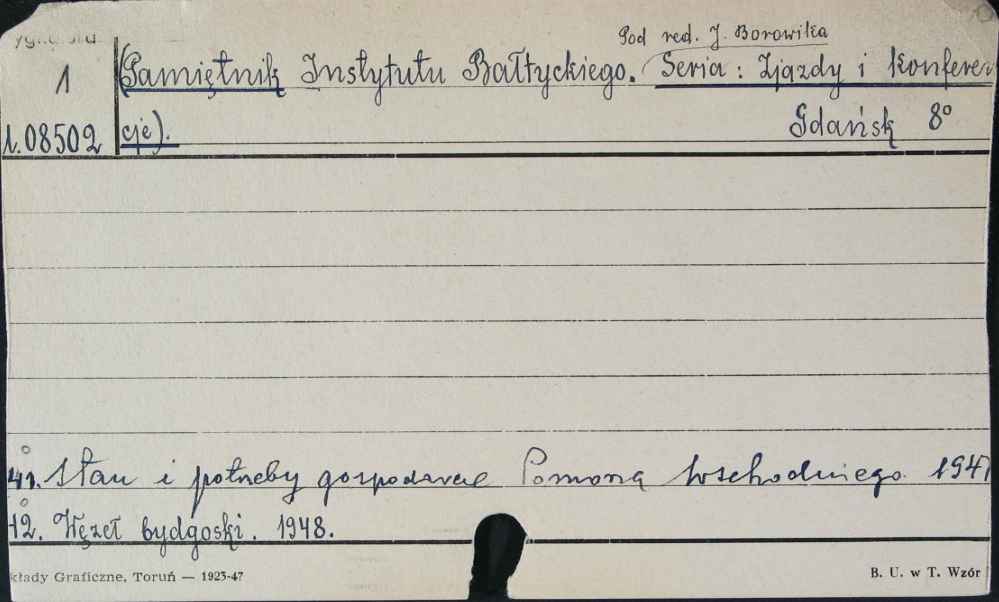 Pod red. J. Borowika
1 (Pamiętnik Instytutu Bałtyckiego. Seria: Zjazdy i Konferen
1.08502 cje). Gdańsk 8°
41. Stan i potrzeby gospodarcze Pomorza Wschodniego. 1947
42. Węzeł bydgoski. 1948.
kłady Graficzne, Toruń — 1923-47 B. U. w T. Wzór